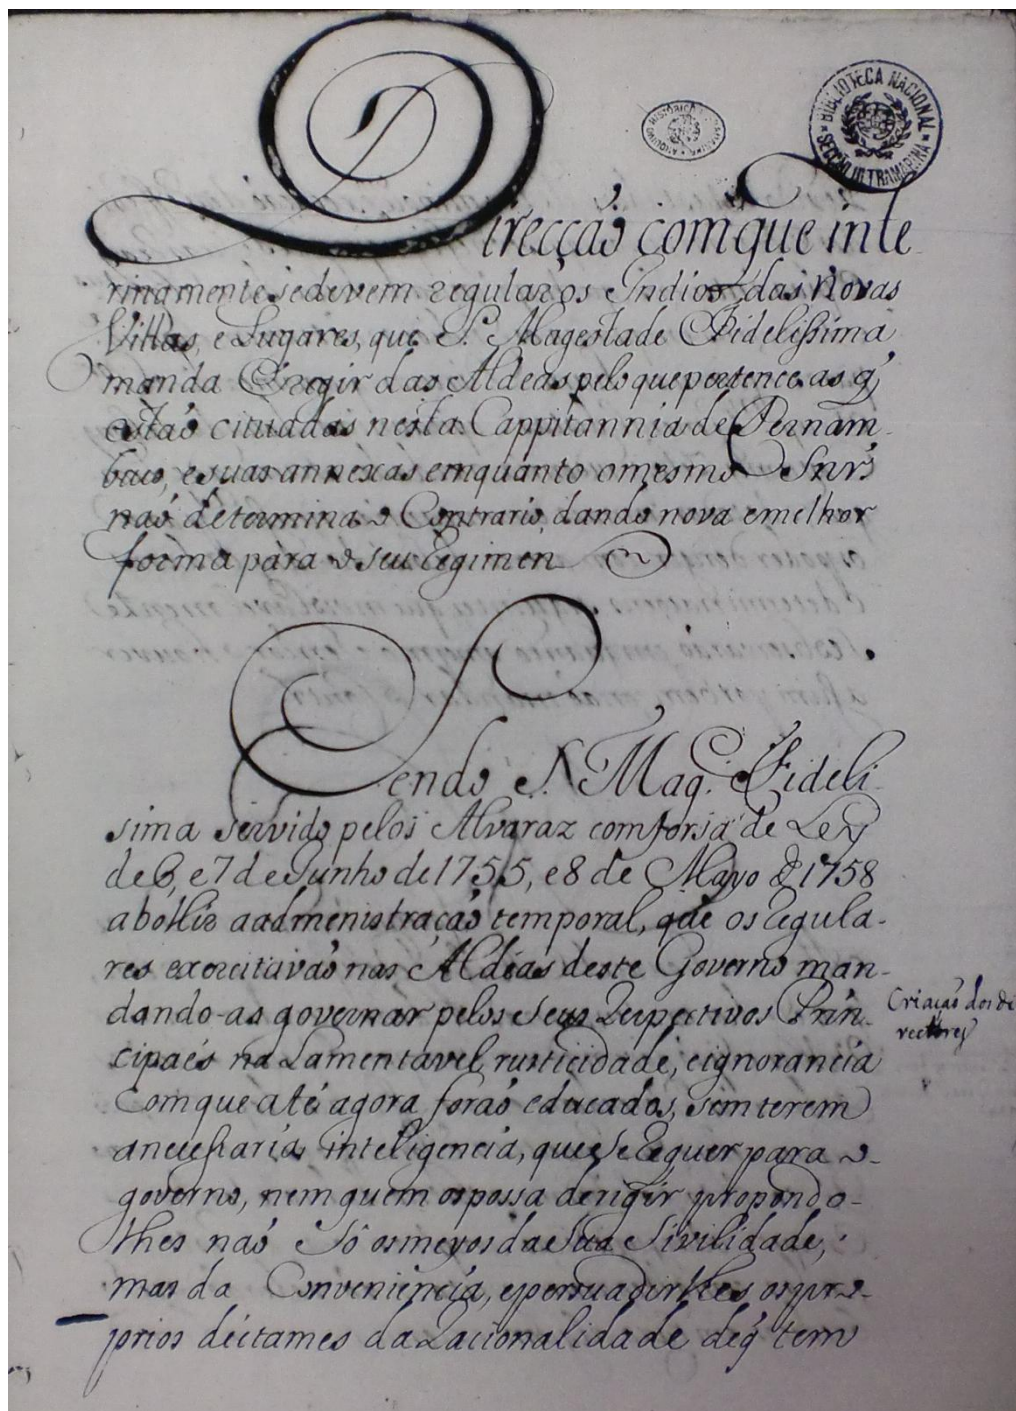 BIBLIOTECA NACIONAL
SECÇÃO ULTRAMARINA
Direcçaõ comque inte
rinamente sedevem regular os Indios das Novas
Villas, e Lugares, que S. Magestade Fidelissima
manda Eregir das Aldeas pelo que pertence as q̃
estaõ cituadas nesta Cappitannia de Pernam-
buco, e suas annexas emquanto omesmo Snr̃
naõ determina o Contrario, dando nova emelhor
forma para o seu Regimen
Sendo S. Mag. Fideli-
sima servido pelos Alvaraz comforsa de Ley
de 6, e 7 de Junho de 1755, e 8 de Mayo de 1758
abollir aadmenistraçaõ temporal, que os Regula-
res exercitavaõ nas Aldeas deste Governo man-
dando-as governar pelos seus Respectivos Prin-
cipaes na Lamentavel rusticidade, eignorancia
Comque até agora foraõ educados, sem terem
anecessaria inteligencia, que se Requer para o
governo, nem quem ospossa dirigir propondo-
lhes naõ só osmeyos da sua Sivilidade,
mas da Conveniencia, epersuadirlhes ospro-
prios dictames da Racionalidade deq̃ tem
Criaçaõ dos di
rectores